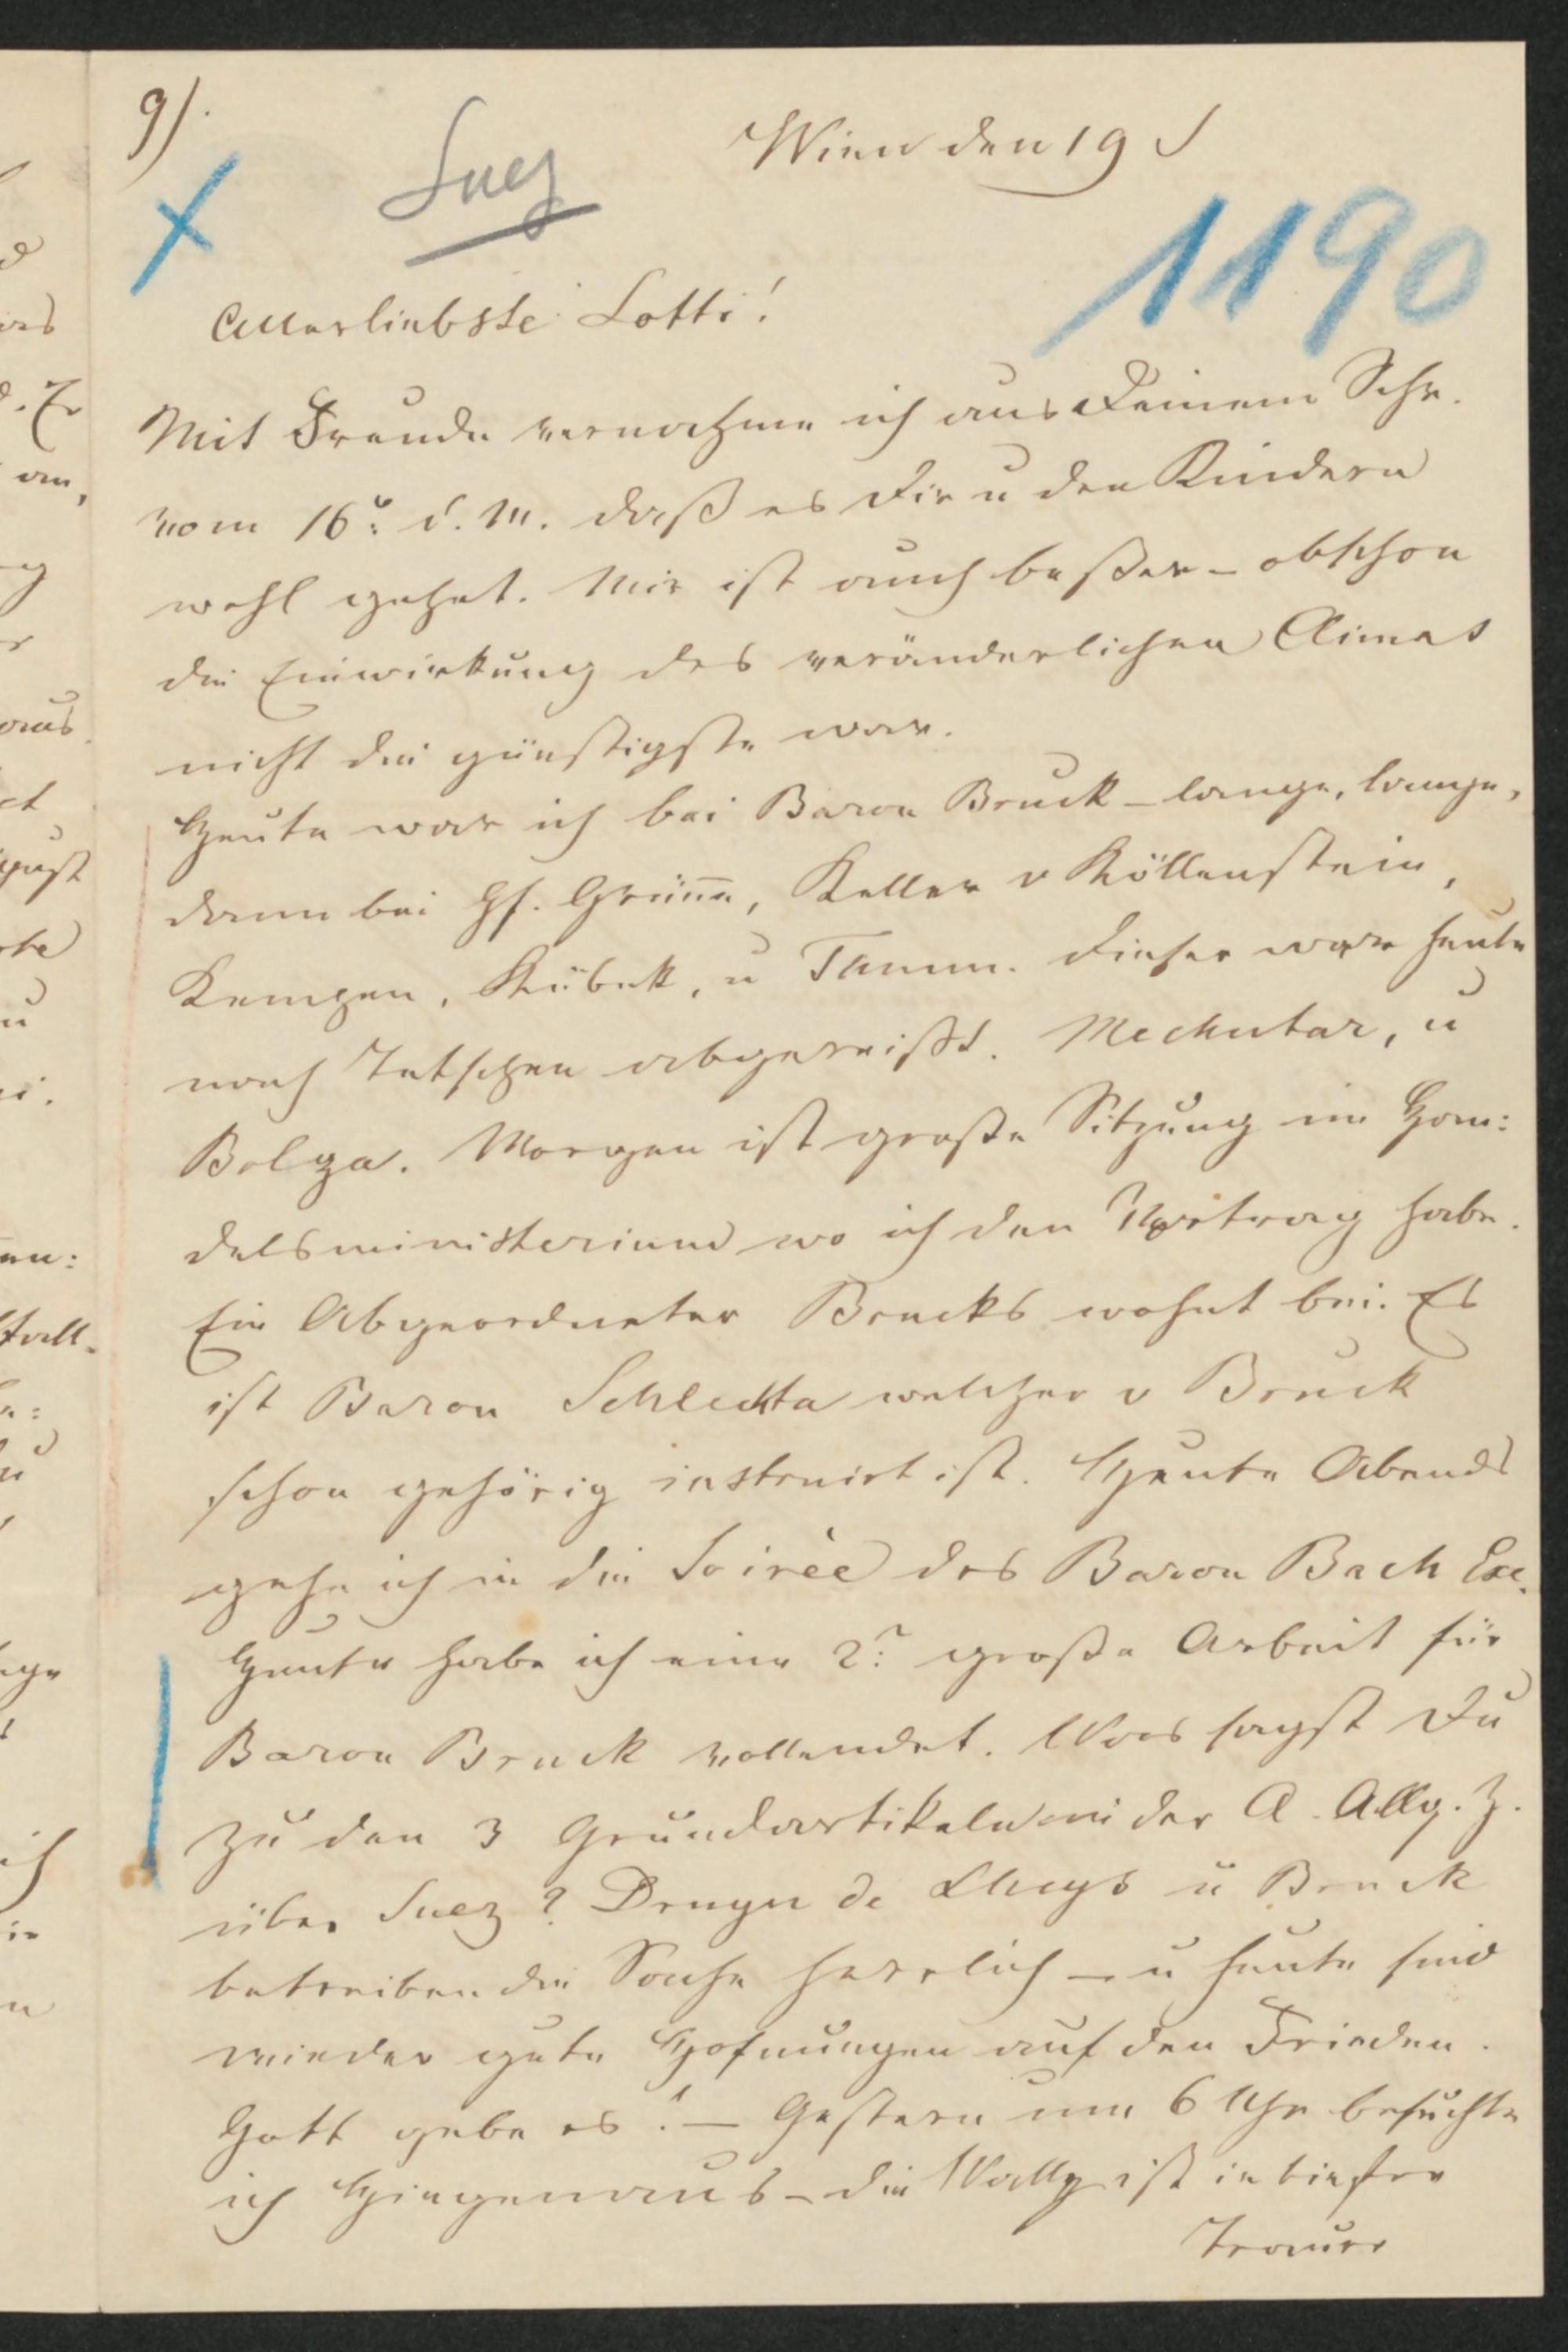 9).
Suez
Wien den 19
1190
Allerliebste Lotti!
Mit Freude vernahme ich aus Deinem Schr.
vom 16. d. M. daß es Dir u den Kindern
wohl gehet. Mir ist auch beßer – obschon
die Einwirkung des veränderlichen Climas
nicht die günstigste war.
Heute war ich bei Baron Bruck – lange, lange,
dann bei Gf. Grünne, Keller v Köllenstein,
Kempen, Kübek, u Thunn. Dieser war heute
nach Tetschen abgereißt. Mechitar, u
Bolza. Morgen ist große Sitzung im Han:
delsministerium wo ich den Vortrag habe.
Ein Abgeordneter Brucks wohnt bei. Es
ist Baron Schlechta welcher v Bruck
schon gehörig instruirt ist. Heute Abends
gehe ich in die Soirèe des Baron Bach Exc.
Heute habe ich eine 2. große Arbeit für
Baron Bruck vollendet. Was sagst Du
zu den 3 Grundartikeln in der A. Allg. Z.
über Suez? Drouyn de Lhuys u Bruck
betreiben die Sache herrlich – u heute sind
wieder gute Hofnungen auf den Frieden.
Gott gebe es! – Gestern um 6 Uhr besuchte
ich Hingenaus – die Wally ist in tiefer
Trauer